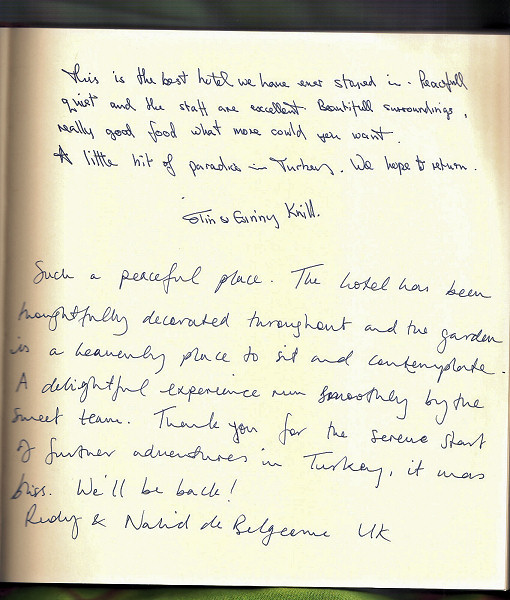 This is the best hotel we have ever stayed in. Peacefull
quiet and the staff are excellent. Beautifull surroundings,
really good food what more could you want.
A little bit of paradise in Turkey. We hope to return.
& Ginny Knill.
Such a peaceful place. The hotel has been
thoughtfully decorated throughout and the garden
is a heavenly place to sit and contemplate.
A delightful experience run smoothly by the
sweet team. Thank you for the serene start
of further adventures in Turkey, it was
bliss. We'll be back!
Rudy & Nahid de Belgeonne UK